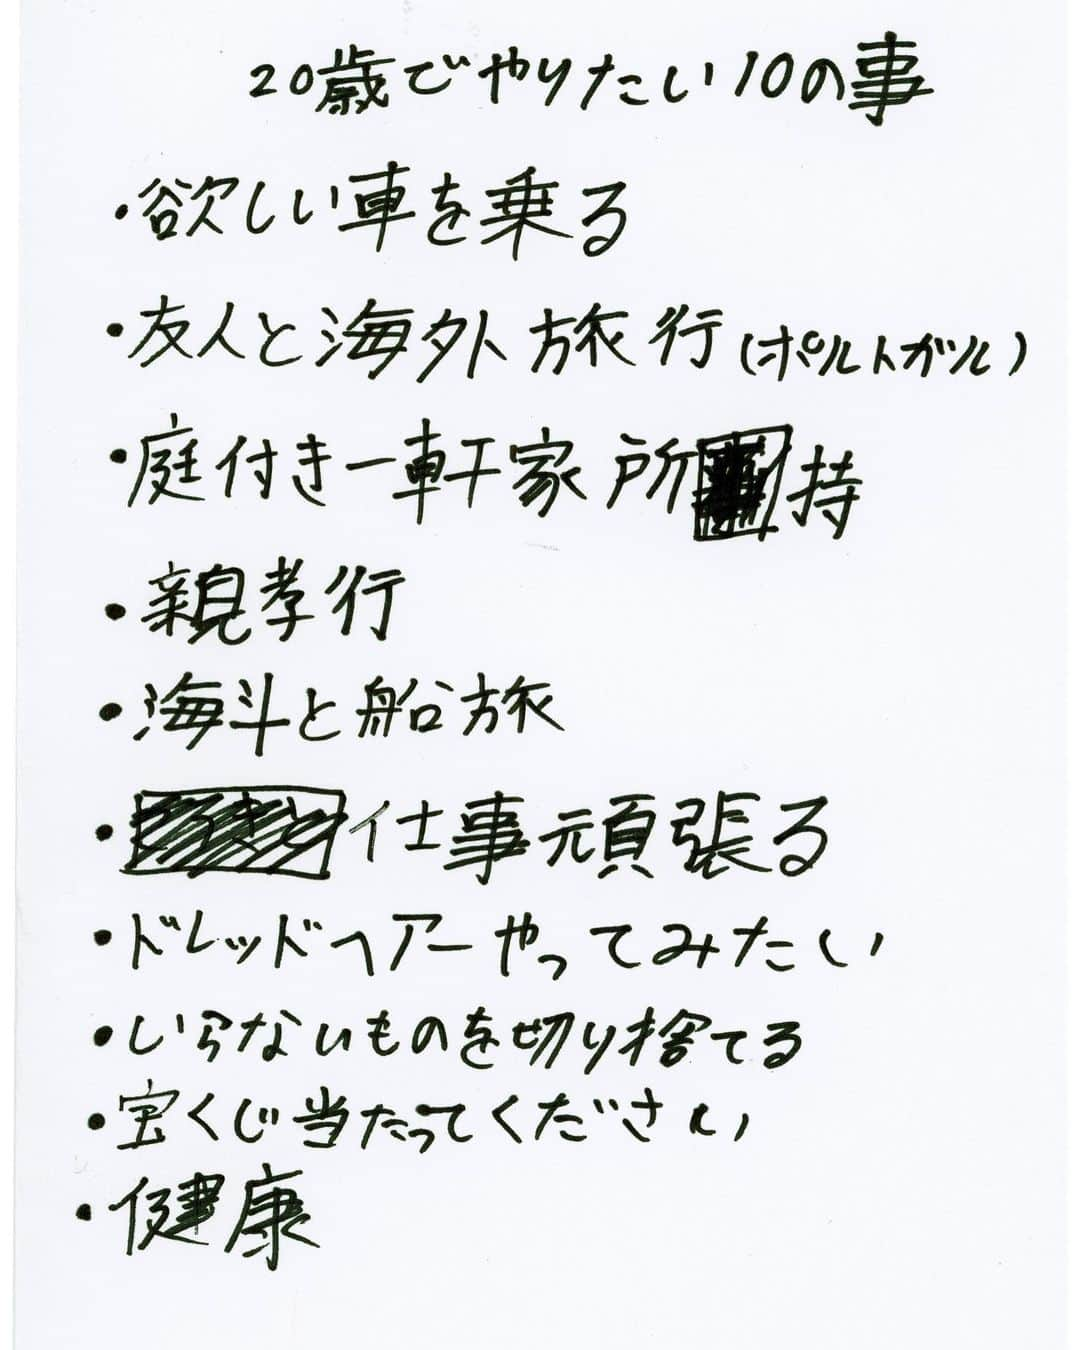 20歳でやりたい10の事
・欲しい車を乗る
・友人と海外旅行(ポルトガル)
・庭付き一軒家所持
・親孝行
・海斗と船旅
・仕事頑張る
・ドレッドヘアーやってみたい
・いらないものを切り捨てる
・宝くじ当たってください
・健康